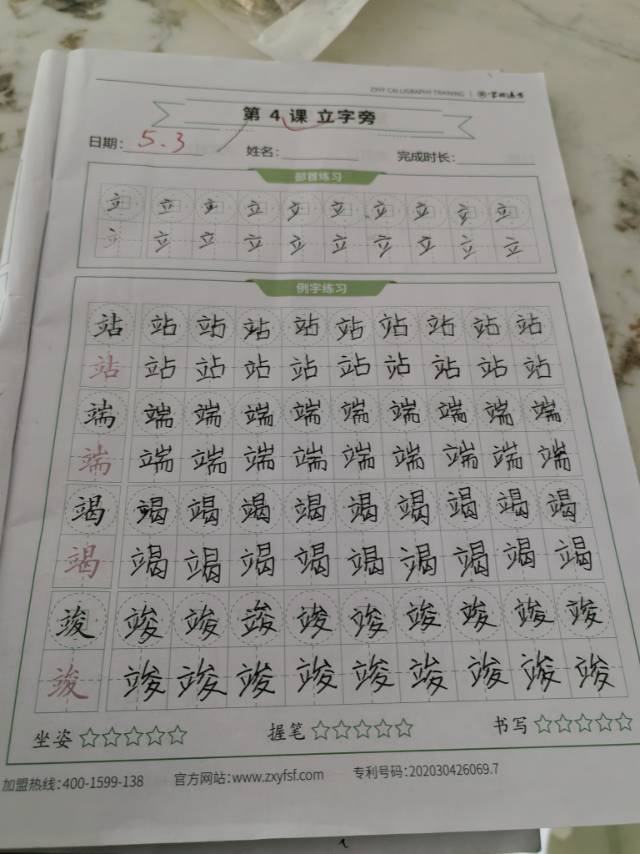 ZXYF CALLIGRAPHY TRAINING
第 4 课 立字旁
日期： 5.3 姓名： 完成时长：
部首练习
立 立 立 立 立 立 立 立 立 立
立 立 立 立 立 立 立 立 立 立
例字练习
站 站 站 站 站 站 站 站 站 站
站 站 站 站 站 站 站 站 站 站
端 端 端 端 端 端 端 端 端 端
端 端 端 端 端 端 端 端 端 端
竭 竭 竭 竭 竭 竭 竭 竭 竭 竭
竭 竭 竭 竭 竭 竭 竭 竭 竭 竭
竣 竣 竣 竣 竣 竣 竣 竣 竣 竣
竣 竣 竣 竣 竣 竣 竣 竣 竣 竣
坐姿 握笔 书写
加盟热线：400-1599-138 官方网站：www.zxyfsf.com 专利号码：202030426069.7